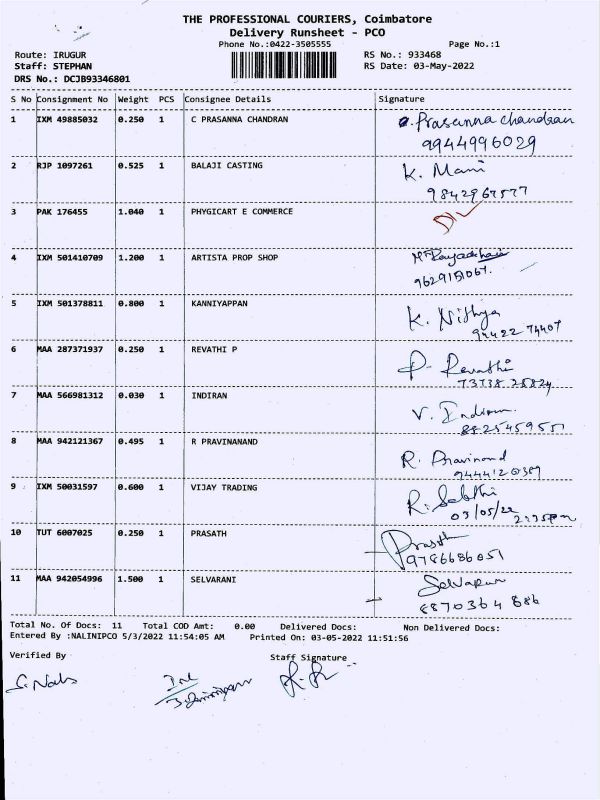 THE PROFESSIONAL COURIERS, Coimbatore
Delivery Runsheet - PCO
Phone No.:0422-3505555
Page No.:1
Route: IRUGUR
RS No.: 933468
Staff: STEPHAN
RS Date: 03-May-2022
DRS No.: DCJB93346801
S No Consignment No Weight PCS Consignee Details Signature
1 IXM 49885032 0.250 1 C PRASANNA CHANDRAN Prasanna chandran
9944996029
2 RJP 1097261 0.525 1 BALAJI CASTING K. Mani
9842967577
3 PAK 176455 1.040 1 PHYGICART E COMMERCE
4 IXM 501410709 1.200 1 ARTISTA PROP SHOP
5 IXM 501378811 0.800 1 KANNIYAPPAN K. Nithya
94422 74407
6 MAA 287371937 0.250 1 REVATHI P P. Revathi
7 MAA 566981312 0.030 1 INDIRAN V. Indiran
8825459551
8 MAA 942121367 0.495 1 R PRAVINANAND R. Pravinand
9 IXM 50031597 0.600 1 VIJAY TRADING R. Sakthi
03/05/22
2:35pm
10 TUT 6007025 0.250 1 PRASATH Prasath
9786686051
11 MAA 942054996 1.500 1 SELVARANI
8870364 686
Total No. Of Docs: 11 Total COD Amt: 0.00 Delivered Docs: Non Delivered Docs:
Entered By :NALINIPCO 5/3/2022 11:54:05 AM Printed On: 03-05-2022 11:51:56
Verified By Staff Signature